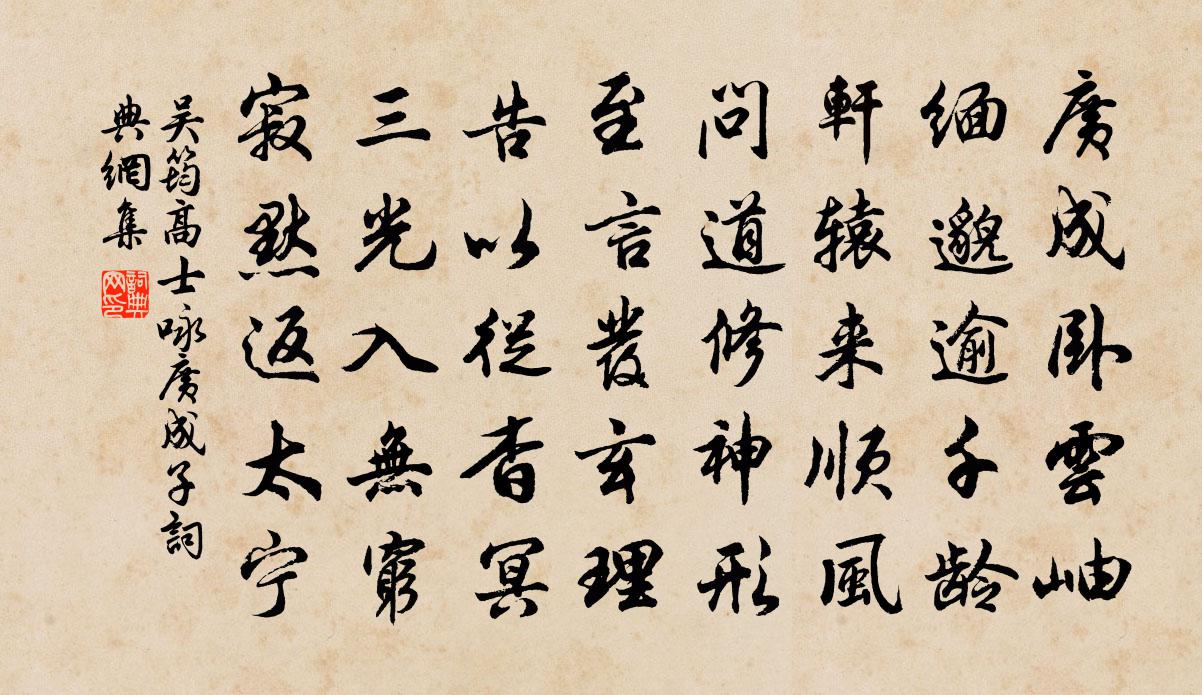 廣成卧雲岫
緬邈逾千龄
軒轅来順風
問道修神形
至言發玄理
告以從杳冥
三光入無窮
寂默返太宁
吴筠高士咏廣成子詞
典網集
詞典
网印